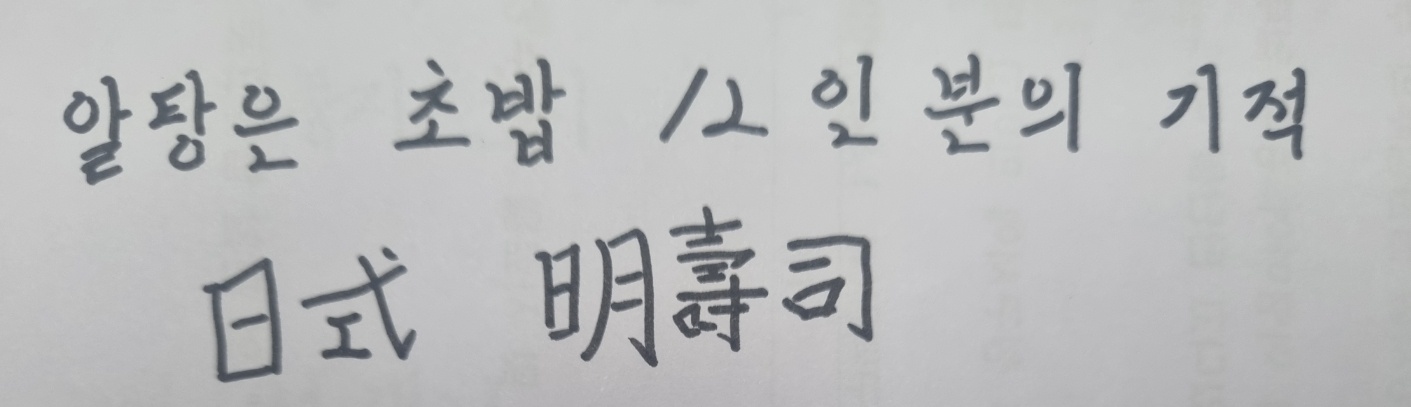 알탕은 초밥 12인분의 기적
日式 明壽司